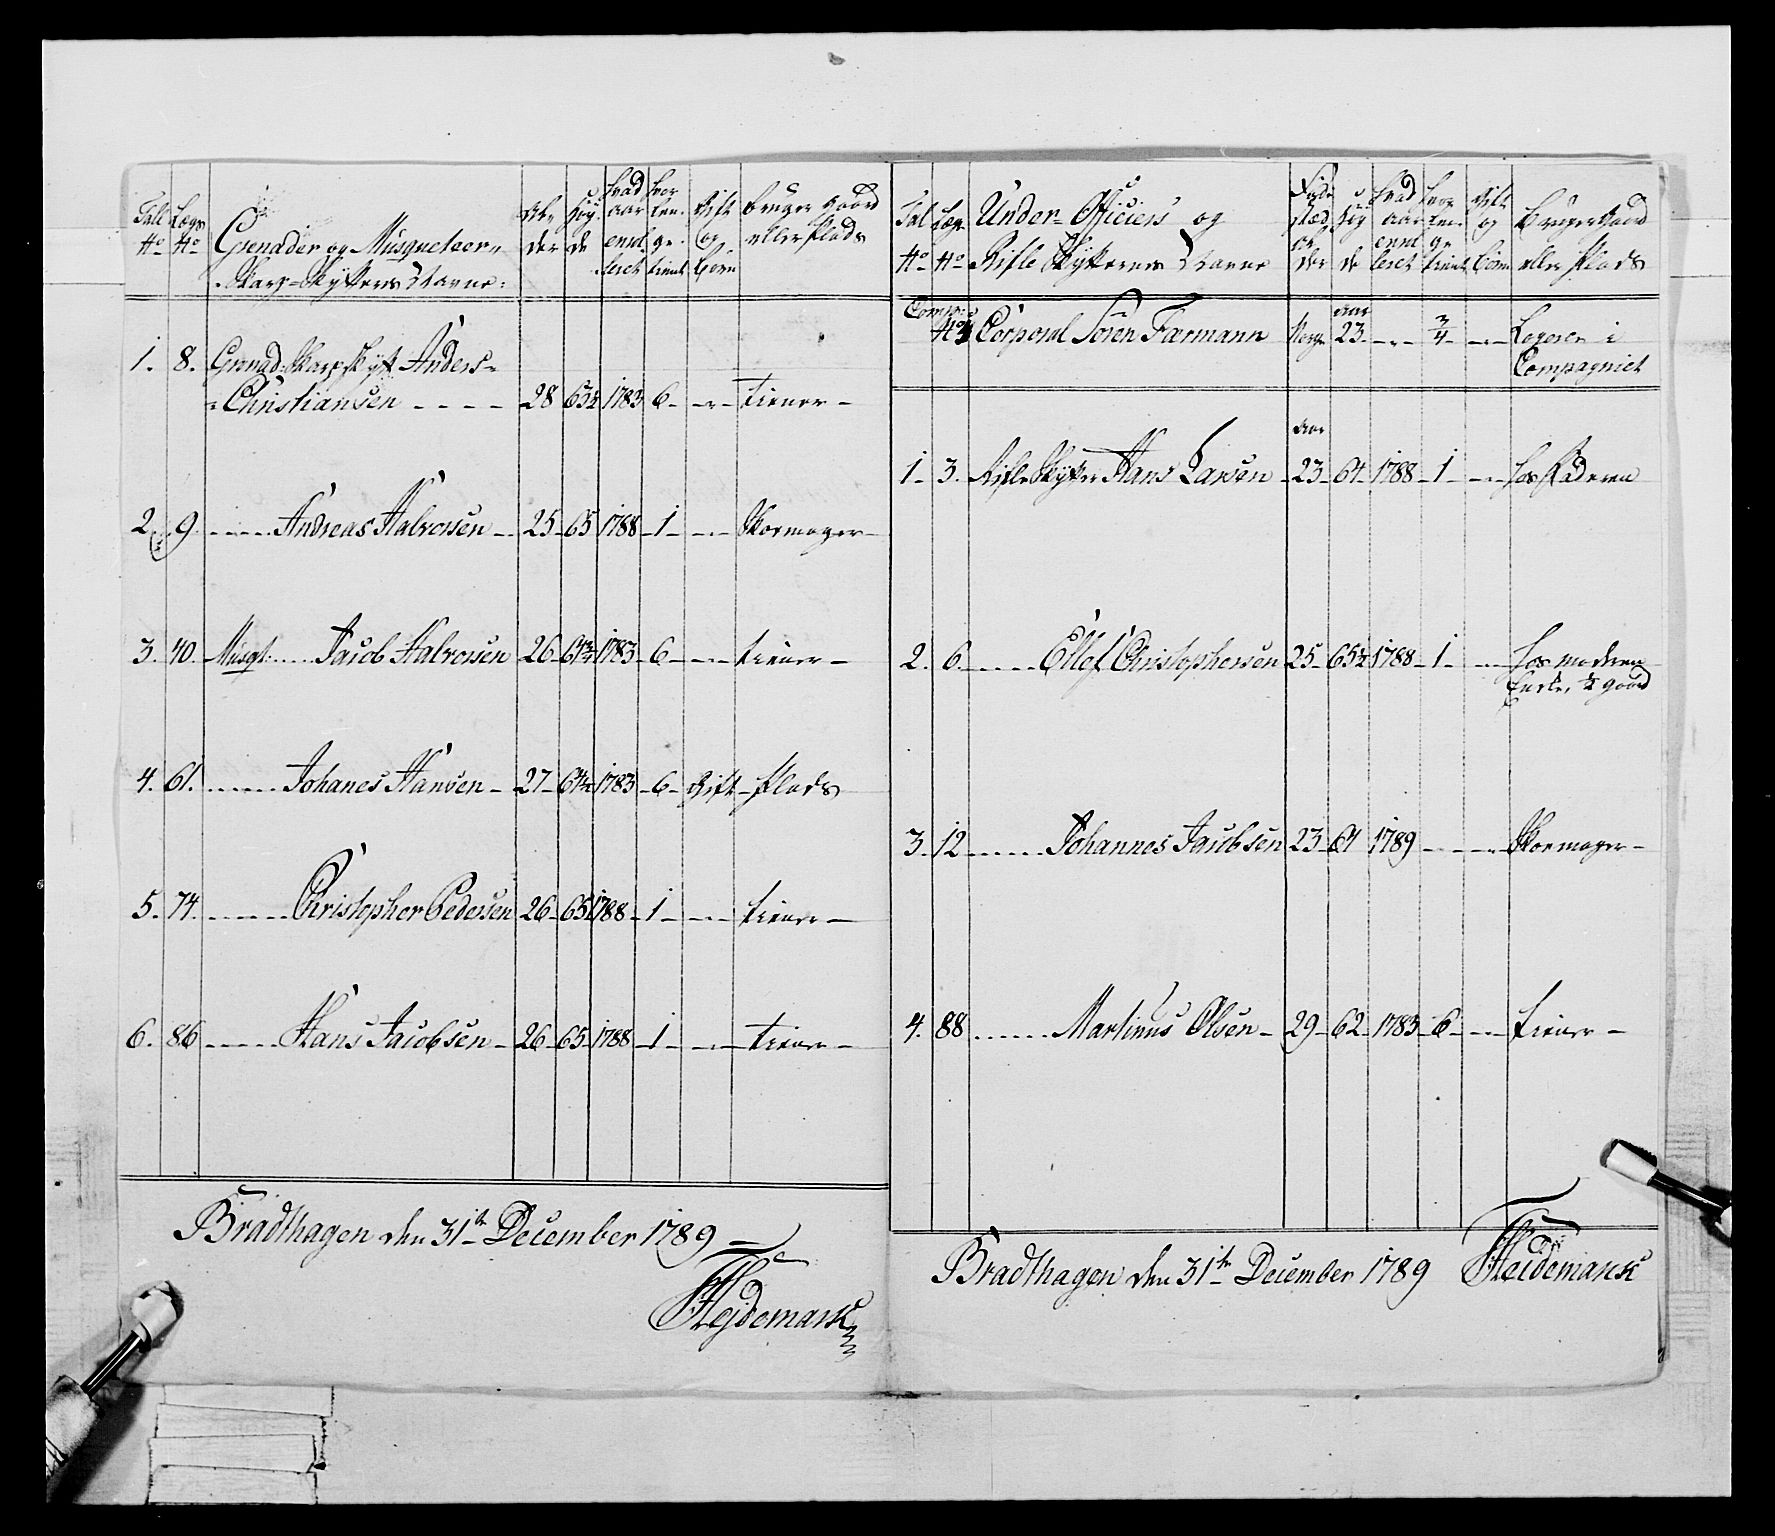 Tall No | Lægs No | Grenader og Musqueteer-
Skarp-Skytternes Navne: | Al-
der | Høy-
de | Hvad
aar
enrol-
leret | Hvor
len-
ge
tient | Gift
og
børn | bruger gaard
eller Plads
1. | 8. | Grenad: Skarpskytt Anders-
Christiansen | 28 | 63½ | 1783 | 6 | - | tiener
2. | 9. | Andreas Halvorsen | 25 | 65 | 1788 | 1 | - | Skoemager
3. | 40. | Musqt: Jacob Halvorsen | 26 | 64¾ | 1783 | 6 | - | tiener
4. | 61. | Johanes Hansen | 27 | 64½ | 1783 | 6 | Gift | Plads
5. | 74. | Christopher Pedersen | 26 | 65 | 1788 | 1 | - | tiener
6. | 86 | Hans Jacobsen | 26 | 65 | 1788 | 1 | - | tiener
Bradthagen den 31te December 1789
Hejdemark
Tal No | Læg No | Under-Officiers og
Rifle Skytternes Navne | Føde
sted
al
der | Høy
de | Hvad
aar
enrol
leret | Hvor
len
ge
tient | Gift
og
børn | bruger Gaard
eller Plads
Comp:
No 3 | Corporal Sören Farmann | Norge | aar
23 | - | ¾ | - | Logerer i
Compagniet
aar
1 | 3. | Rifle Skytter Hans Larsen | 23 | 64 | 1788 | 1 | - | hos Faderen
2. | 6. | Ellef Christophersen | 25 | 65½ | 1788 | 1 | - | hos moderen
½ gaard
3. | 12 | Johannes Jacobsen | 23 | 64 | 1789 | - | - | Skoemager
4. | 88 | Martinus Olsen | 29 | 62 | 1783 | 6 | - | tiener
Bradthagen den 31te December 1789 Heidemark